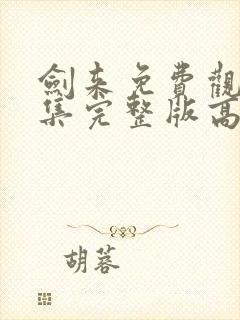 劍來免費觀
集完整版高
胡蓉